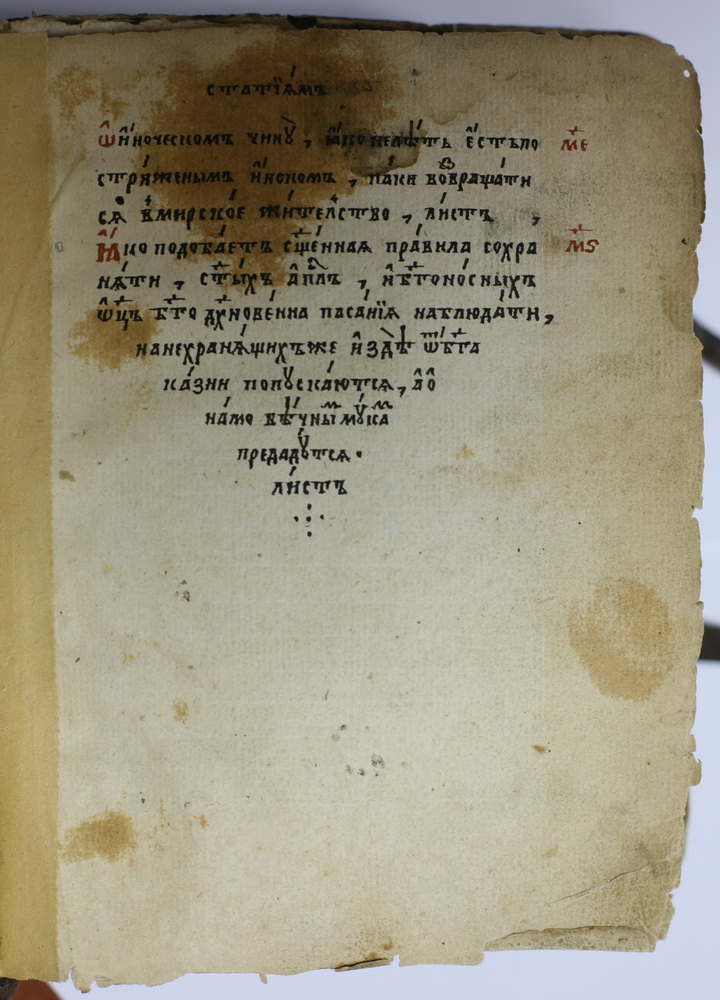 статїѧмъ
Ѿи́ноческомъ чинꙋ̀, ꙗ҆́ко нелѣ́ть є҆́стьпо м҃е
стри́женымъ и҆́нокомъ, па́ки вовраща́ти
сѧ̀ вмирско́е жи́телство, ли́стъ,
Ꙗ҆́ко подоба́етъ сщ҃е́ннаѧ пра́вила сохра м҃ѕ
нѧ́ти, ст҃ы́хъ а҆пл҃ъ, и҆бг҃оно́сныхъ
ѻ҆ц҃ъ бг҃одх҃нове́нна писа́нїѧ наблюда́ти,
нанехранѧ́щихъже и҆здѣ̀ ѿбг҃а
ка́зни попꙋска́ютсѧ, а҆ѻ҆
на́мо вѣ́чнымꙋка
предадꙋ́тсѧ.
ли́стъ